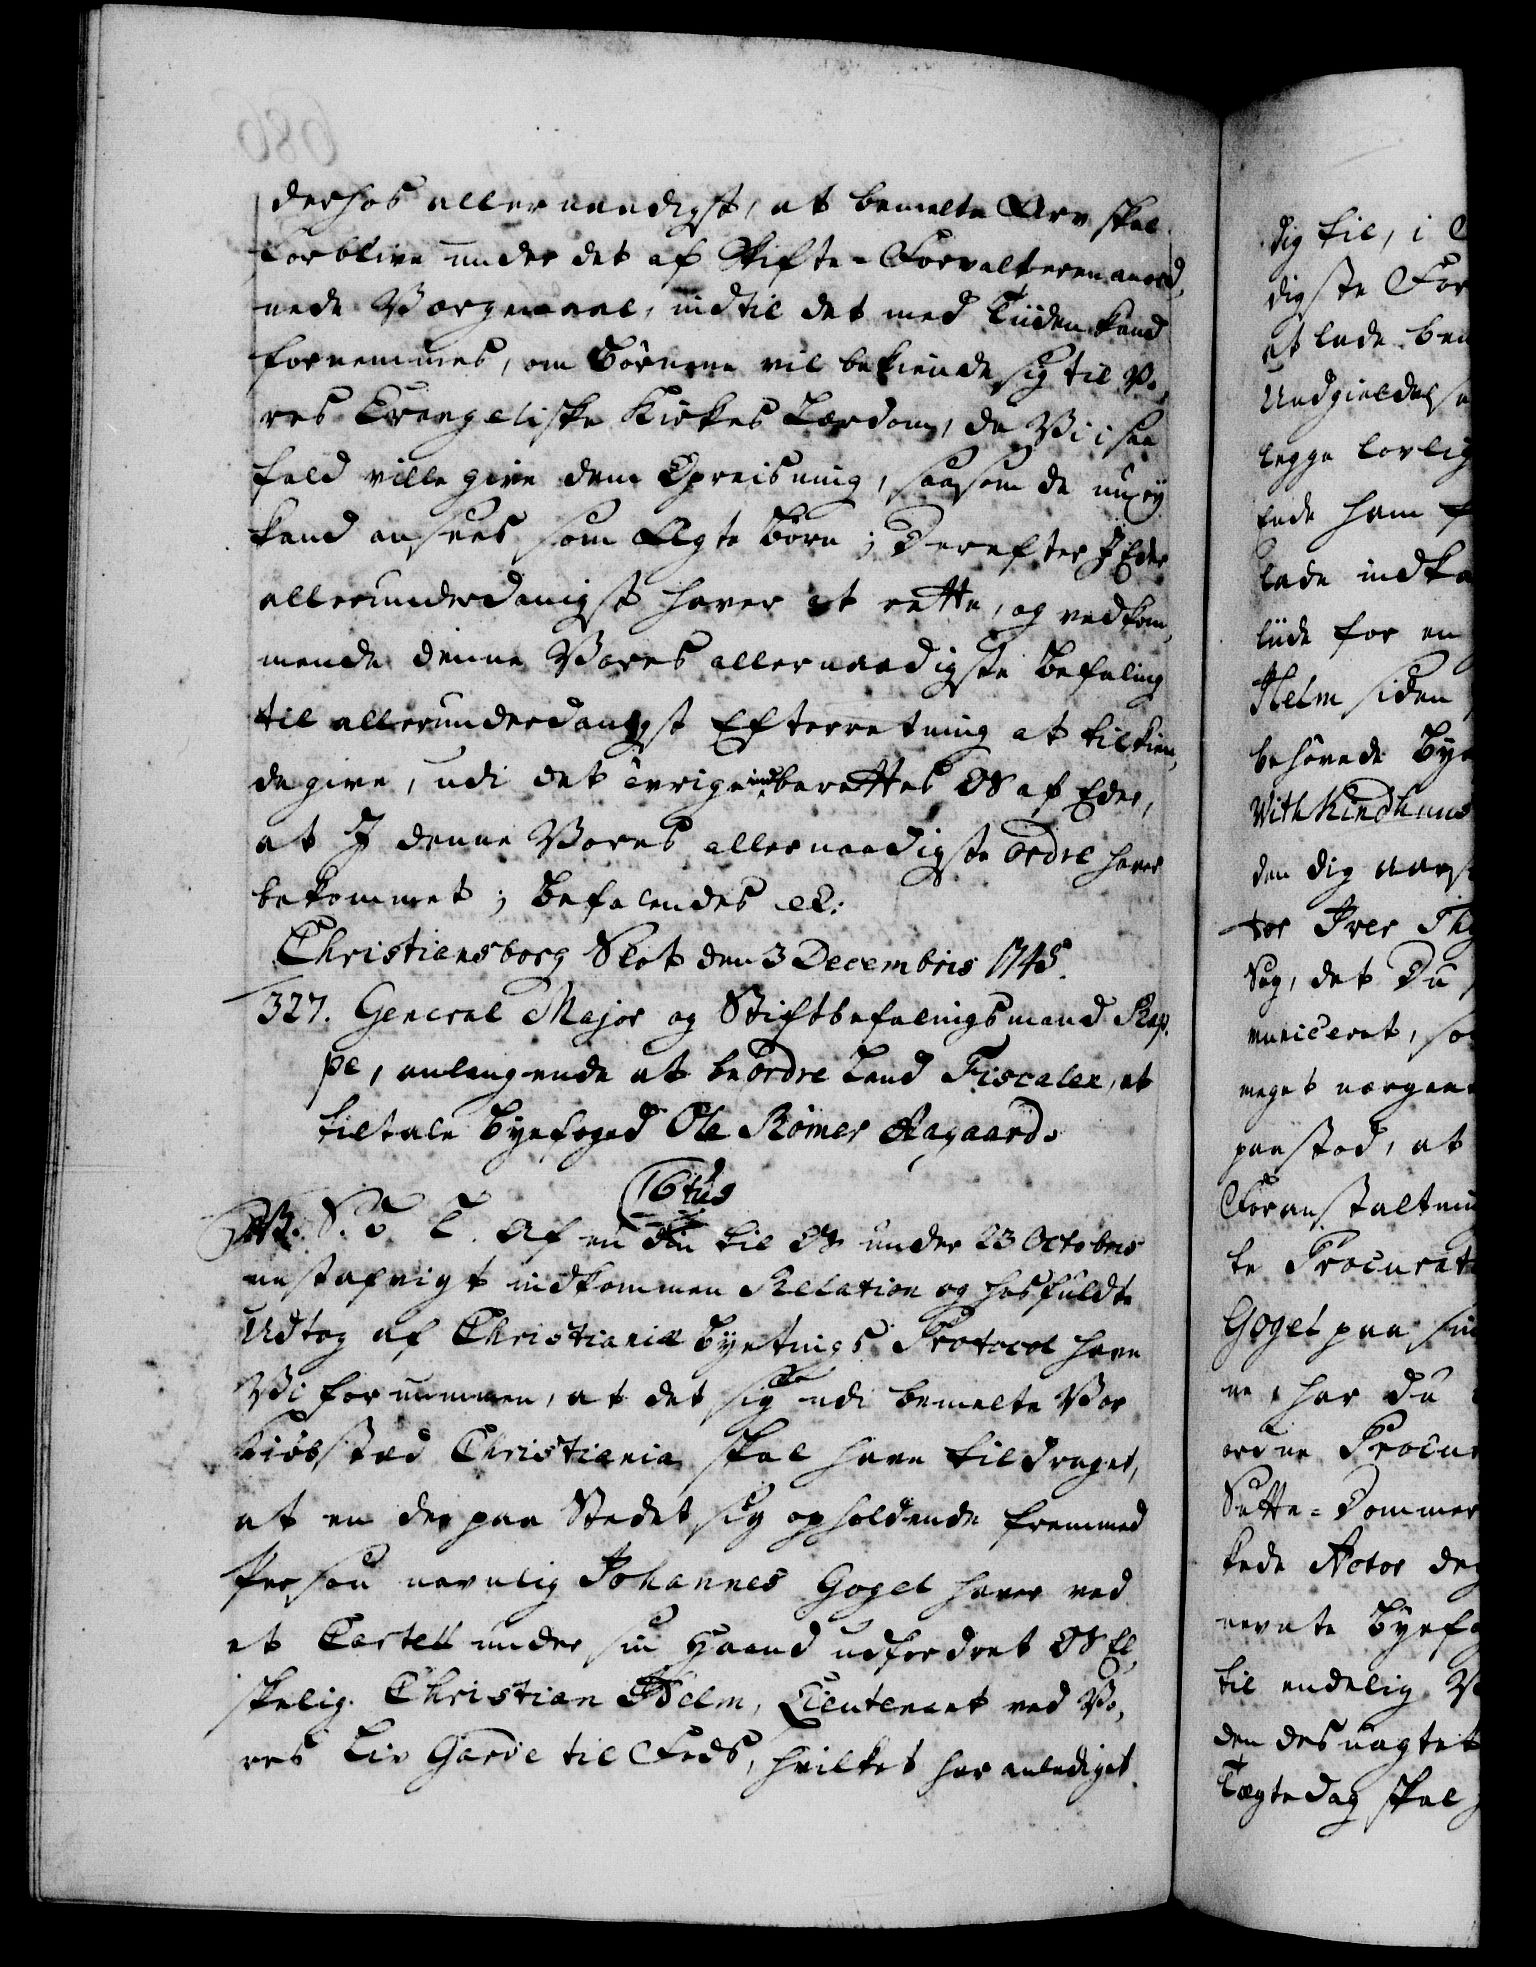 derhos allernaadigst, at bemelte Arv skal
forblive under det af Skifte-Forvalteren anord,
nede Værgemaal, indtil det med Tiiden kand
fornemmes, om Børnene vil bekiende sig til Vo,
res Evangeliske Kirkes Lærdom, da Vi i saa
fald ville give dem Opreisning, saasom de nu ey
kand ansees som Ægte Børn; Derefter I Eder
allerunderdanigst haver at rette, og vedkom,
mende denne Vores allernaadigste Befaling
til allerunderdanigst Efterretning at tilkien,
degive, udi det øvrige indberettes OS af Eder,
at I denne Vores allernaadigste ordre haver
bekommet; Befalendes etc:
Christiansborg Slot den 3 Decembris 1745.
327. General Major og Stiftbefalingsmand Rap,
pe, anlangende at beordre Land Fiscalen, at
tiltale Byefoged Ole Rømer Aagaard.
C 6tus
S. G. T. Af en din til OS under 23 Octobris
nestafvigt indkommen Relation og hosfuldte
Udtog af Christianiæ Byetings Protocol have
Vi fornummen, at det sig udi bemelte Vor
Kiøbstæd Christiania skal have tildraget,
at en der paa Stedet sig opholdende fremmed
Person navnlig Johannes Gogel haver ved
et Cartell under sin Haand udfordret OS El,
skelig. Christian Helm, Lieutenant ved Vo,
res Liv Garde til Fods, hvilket har anlediget
dig til, i
digste For
at lade be
Undgieldelse
legge lovlig
kade ham
lade indka
lüde for en
Helm siden
behørede Bye
With Kindhuus
den dig
tor Iver Thy
Sag, det Du
municeret, so
meget
paastod, at
Foranstaltning
te Procurat
Gogel paa sin
ne, har du
ordne Procur
Sætte-Dommer
kede Actor
nevnte Byefo
til endelig
den des uagtet
Tægtedag skal